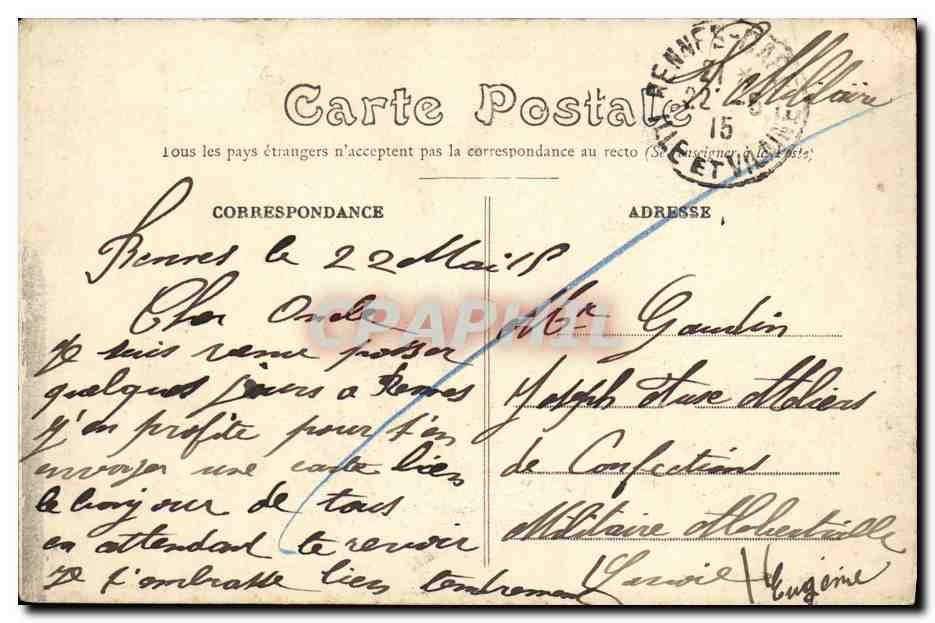 Carte Postale
Tous les pays étrangers n'acceptent pas la correspondance au recto (Se renseigner à la Poste)
RENNES
21
22 - 5
15
ILLE ET VILAINE
Militaire
CORRESPONDANCE
Rennes le 22 Mai 15
Cher Oncle
Je suis venue passer
quelques jours a Rennes
j'en profite pour t'en
envoyer une carte bien
le bonjour de tous
en attendant te revoir
Je t'embrasse bien tendrement
Eugénie
ADRESSE
Mr Gaudin
Joseph Aux Atteliers
de Confections
Militaire Albertville
Savoie
CPAPHIL